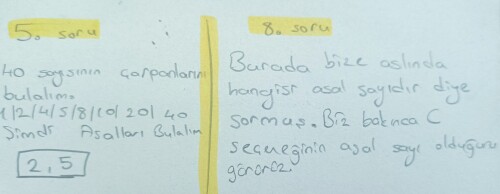 5. soru
40 sayısının çarpanlarını
bulalım.
1/2/4/5/8/10/20/40
Şimdi Asalları Bulalım
2,5
8. soru
Burada bize aslında
hangisi asal sayıdır diye
sormuş. Biz bakınca C
seçeneğinin asal sayı olduğunu
görürüz.